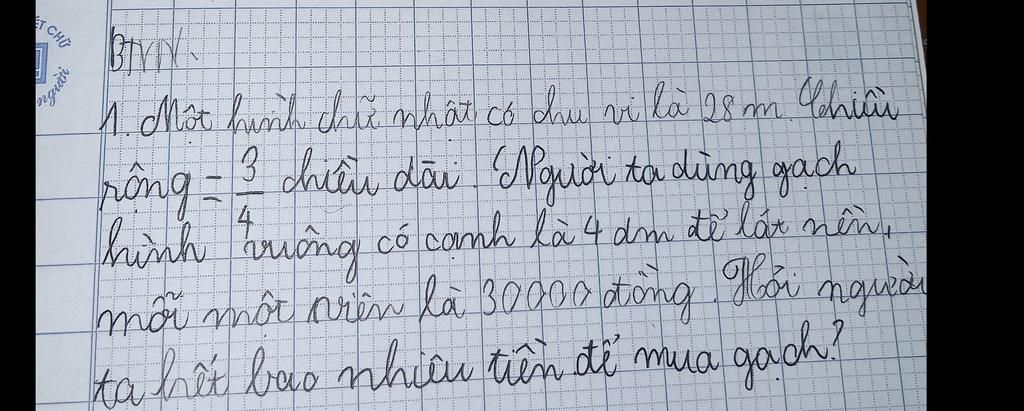 ẾT CHỮ
người
BTVN.
1. Một hình chữ nhật có chu vi là 28 m. Chiều
rộng = 3/4 chiều dài. Người ta dùng gạch
hình vuông có cạnh là 4 dm để lát nền,
mỗi một viên là 30000 đồng. Hỏi người
ta hết bao nhiêu tiền để mua gạch?